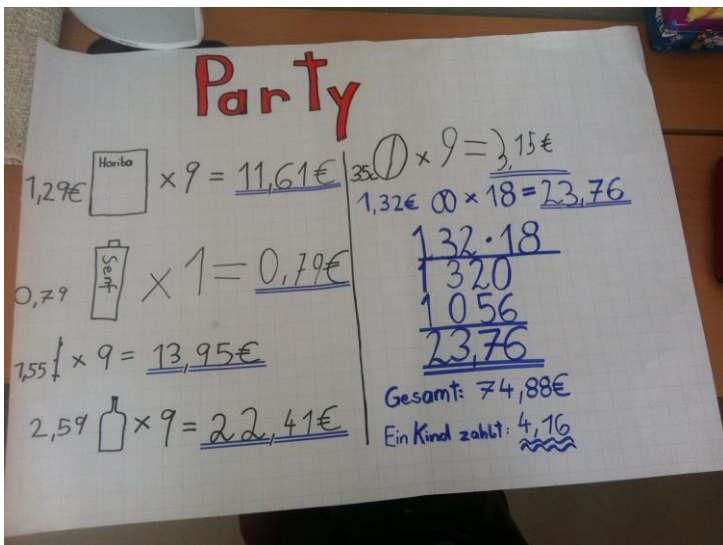 Party
1,29€ Haribo × 9 = 11,61€
0,79 Senf × 1 = 0,79€
1,55 × 9 = 13,95€
2,59 × 9 = 22,41€
35c × 9 = 3,15€
1,32€ × 18 = 23,76
132 · 18
1 320
1 056
23,76
Gesamt: 74,88€
Ein Kind zahlt: 4,16